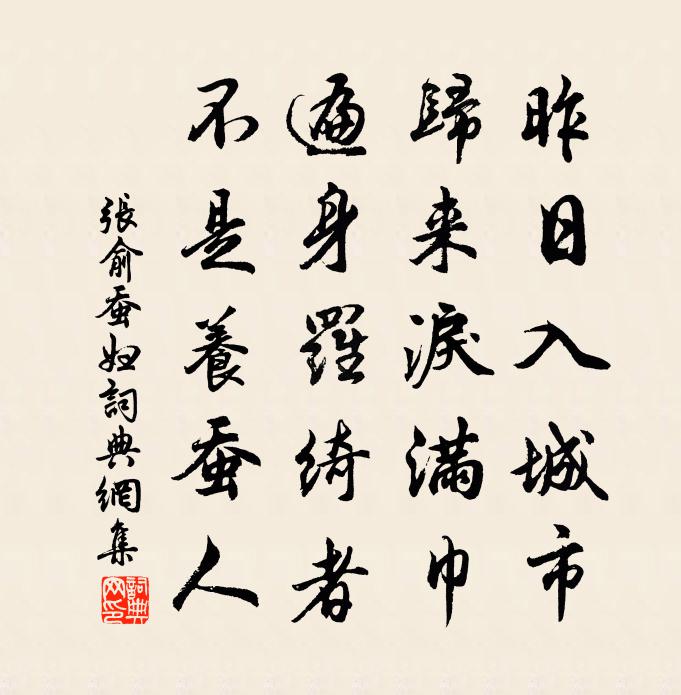 昨日入城市
歸来淚滿巾
遍身羅綺者
不是養蚕人
張俞蚕婦詞典網集
詞典網印